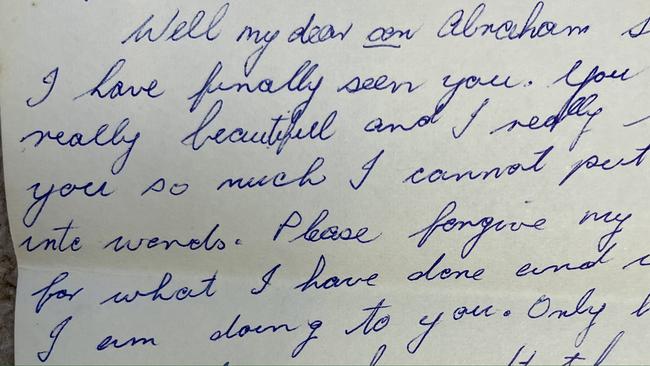 Well my dear son Abraham
I have finally seen you. You
really beautiful and I really
you so much I cannot put
into words. Please forgive my
for what I have done and
I am doing to you. Only